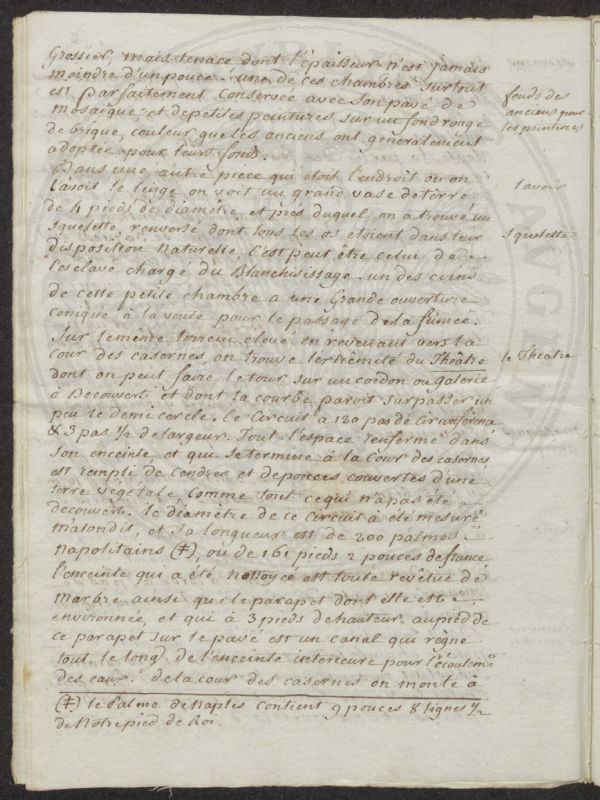 Grossier, mais tenace dont l'épaisseur n'est jamais
moindre d'un pouce. une de ces chambres surtout
est parfaitement conservée avec son pavé de
mosaïque et de petites peintures sur un fond rouge
de brique, couleur que les anciens ont généralement
adoptée pour leurs fonds.
fonds des
anciens pour
les peintures
Dans une autre piece qui etoit l'endroit ou on
lavoit le linge on voit un grand vase de terre
lavoir
de 4 pieds de diamêtre, et près duquel on a trouvé un
squelette, renversé dont tous les os étoient dans leur
squelette
disposition naturelle, c'est peut être celui de
l'esclave chargé du Blanchissage. un des coins
de cette petite chambre a une Grande ouverture
conique à la voute pour le passage de la fumée.
Sur le meme terrein elevé en revenant vers la
cour des casernes, on trouve l'extrêmité du Théâtre
le Theatre
dont on peut faire le tour sur un cordon ou galerie
à Decouvert et dont la courbe paroit surpasser un
peu le demi cercle. Ce Circuit a 120 pas de Circonférence
& 3 pas ½ de largeur. Tout l'espace renfermé dans
son enceinte, et qui se termine à la Cour des casernes
est rempli de cendres et de ponces couvertes d'une
terre végétale, comme tout ce qui n'a pas été
decouvert. le diamètre de ce Circuit a été mesuré
et sa longueur est de 200 palmes
Napolitains (‡), ou de 161 pieds 2 pouces de france
l'enceinte qui a été nettoyée est toute revêtue de
marbre ainsi que le parapet dont elle est
environnée, et qui a 3 pieds de hauteur. au pied de
ce parapet sur le pavé est un canal qui règne
tout le long de l'enceinte interieure pour l'écoulemt
des eaux. de la cour des casernes on monte à
(‡) le Palme de Naples contient 9 pouces 8 lignes ½
de Notre pied de Roi.